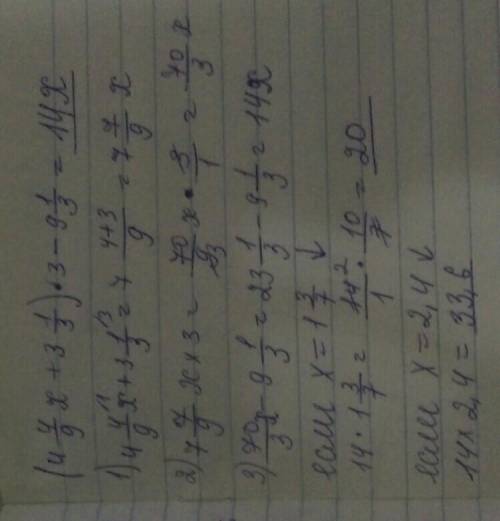 (4 4/9 x + 3 1/3) · 3 - 9 1/3 = 14x
1) 4 4/9 x + 3 1/3 = 7 (4+3)/9 = 7 7/9 x
2) 7 7/9 x × 3 = 70/9 x · 3/1 = 70/3 x
3) 70/3 x - 9 1/3 = 23 1/3 - 9 1/3 = 14x
если x = 1 3/7 ↓
14 · 1 3/7 = 14/1 · 10/7 = 20
если x = 2,4 ↓
14 × 2,4 = 33,6